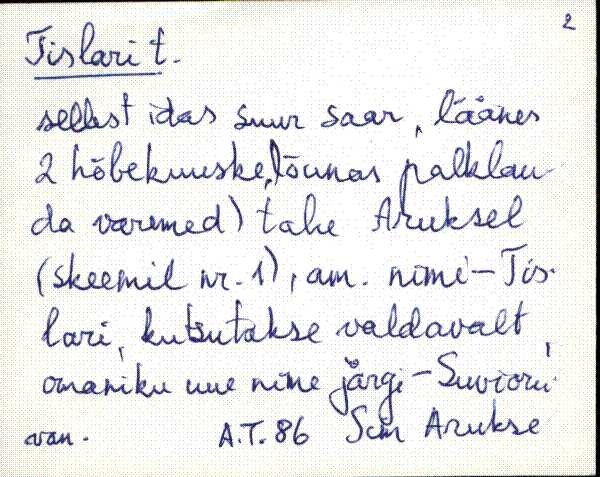 2
Tislari t.
sellest idas suur saar, läänes
2 hõbekuuske, lõunas palklau-
da varemed) talu Aruksel
(skeemil nr. 1), am. nimi - Tis-
lari, kutsutakse valdavalt
omaniku uue nime järgi - Suviorri
van. A.T. 86 Sim Arukse